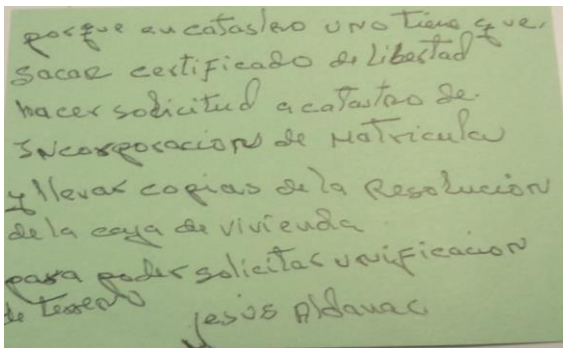 porque en catastro uno tiene que
sacar certificado de Libertad
hacer solicitud a catastro de
Incorporacion de Matricula
y llevar copias de la Resolucion
de la caja de vivienda
para poder solicitar unificacion
de terreno
Jesús Aldana